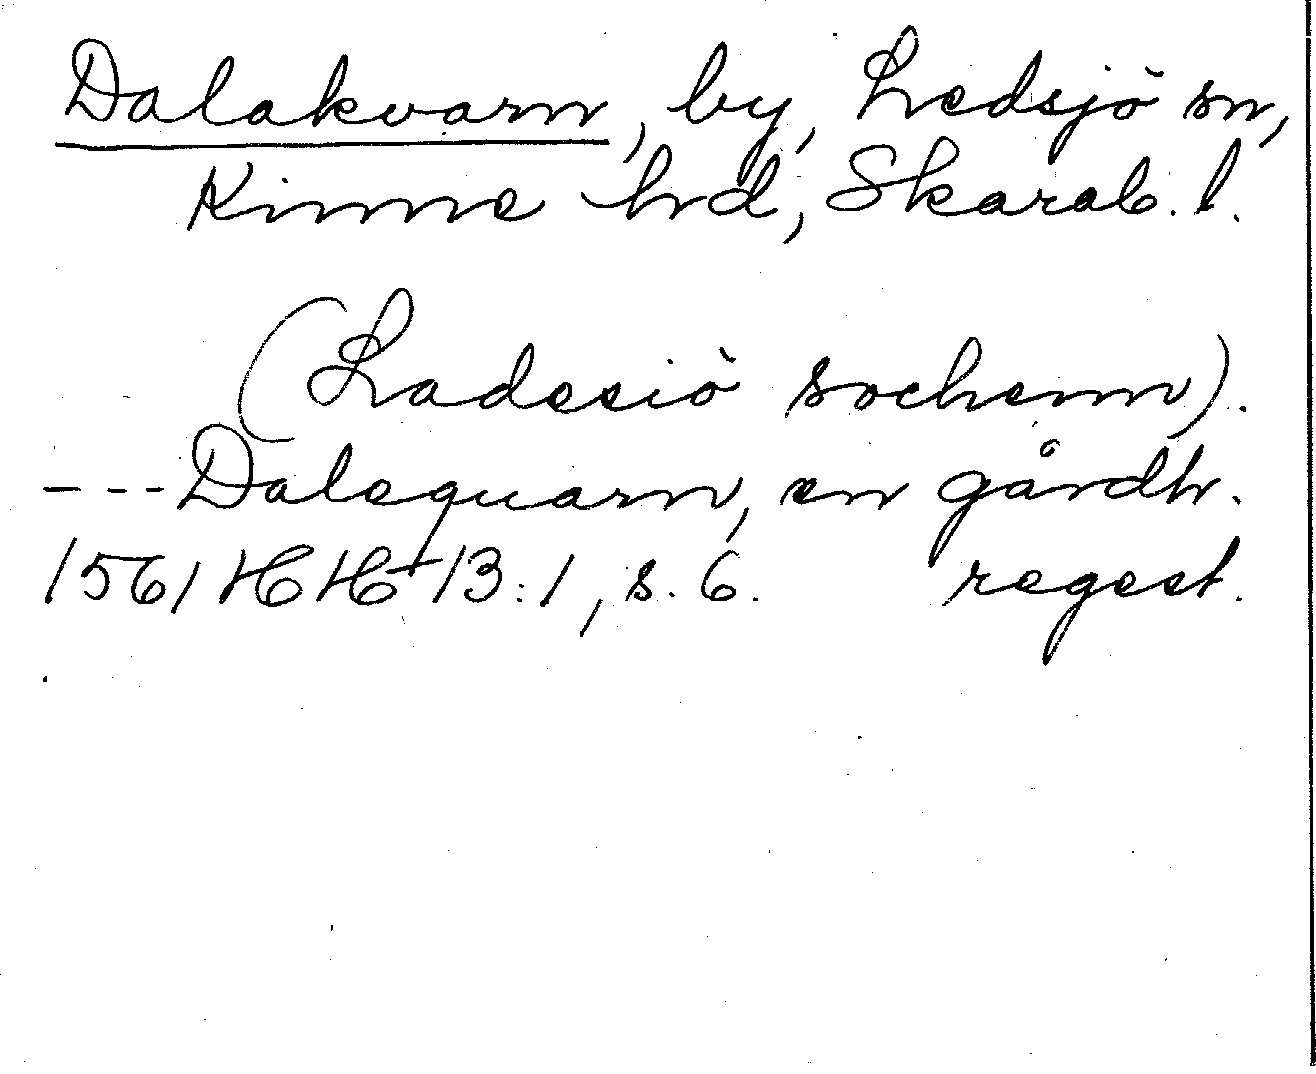 Dalakvarn, by, Ledsjö sn,
Kinne hd, Skarab. l.
(Ladesiö sochenn).
--- Dalequarn, en gårdh.
1561 HH 13:1, s. 6. regest.